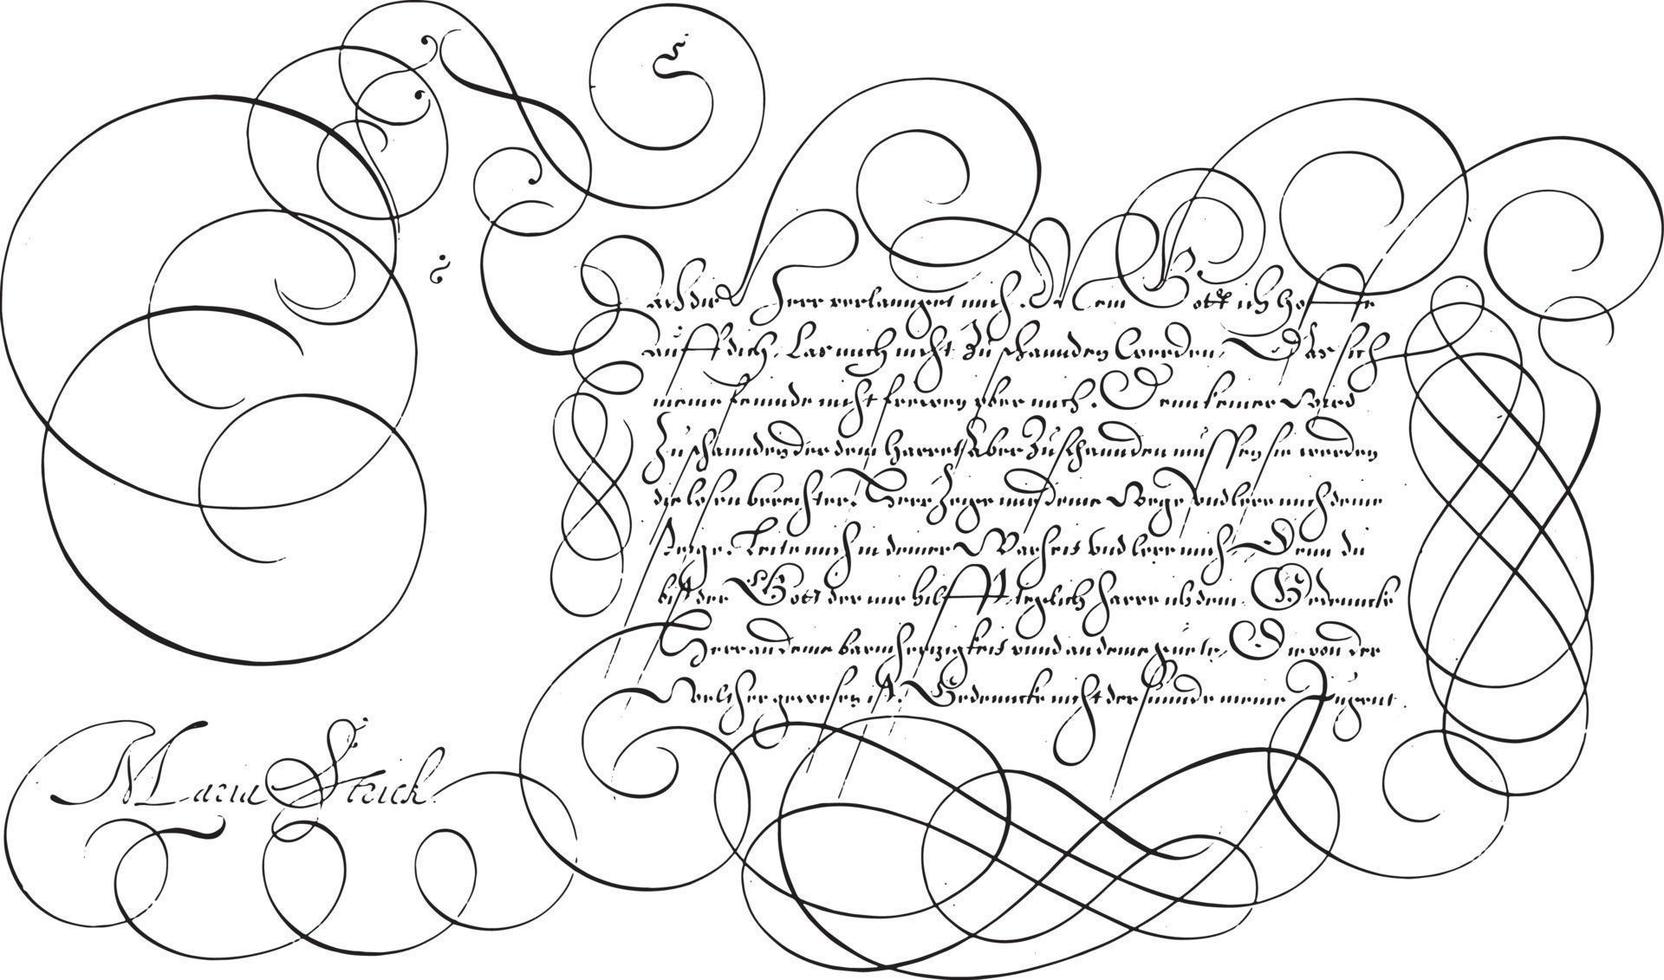 Nach dir Herr verlannget mich. Mein Gott ich hoffe
auff dich, Las mich nicht zu schannden werden, Das sich
meine feinnde nicht frewen vber mich. Denn keiner wird
zu schannden der dein harret, Aber zu schannden müssen sie werden
die losen verechter. Herr zeige mir deine Wege vnd lere mich deine
stege. Leite mich in deiner Warheit vnd lere mich, Denn du
bist der Gott der mir hilfft, teglich harre ich dein. Gedenncke
Herr an deine barmhertzigkeit vnnd an deine güete, Die von der
Welt her gewesen ist. Gedenncke nicht der sünnde meiner Jugent.
Maria Strick.